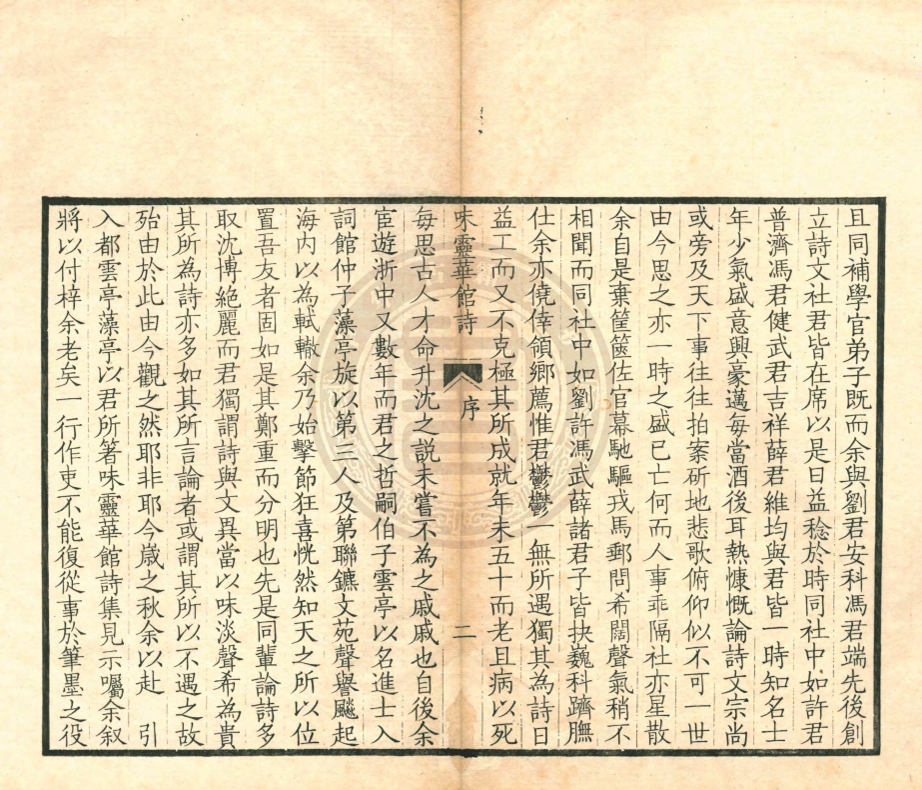 且同補學官弟子既而余與劉君安科馮君端先後創
立詩文社君皆在席以是日益稔於時同社中如許君
普濟馮君健武君吉祥薛君維均與君皆一時知名士
年少氣盛意興豪邁每當酒後耳熱慷慨論詩文宗尚
或旁及天下事往往拍案斫地悲歌俯仰似不可一世
由今思之亦一時之盛已亡何而人事乖隔社亦星散
余自是棄筐篋佐官幕馳驅戎馬郵問希闊聲氣稍不
相聞而同社中如劉許馮武薛諸君子皆抉巍科躋膴
仕余亦僥倖領鄉薦惟君鬱鬱一無所遇獨其為詩日
益工而又不克極其所成就年未五十而老且病以死
味靈華館詩 序 二
每思古人才命升沈之說未嘗不為之戚戚也自後余
宦遊浙中又數年而君之哲嗣伯子雲亭以名進士入
詞館仲子藻亭旋以第三人及第聯鑣文苑聲譽飈起
海內以為軾轍余乃始擊節狂喜恍然知天之所以位
置吾友者固如是其鄭重而分明也先是同輩論詩多
取沈博絕麗而君獨謂詩與文異當以味淡聲希為貴
其所為詩亦多如其所言論者或謂其所以不遇之故
殆由於此由今觀之然耶非耶今歲之秋余以赴 引
入都雲亭藻亭以君所箸味靈華館詩集見示囑余敘
將以付梓余老矣一行作吏不能復從事於筆墨之役